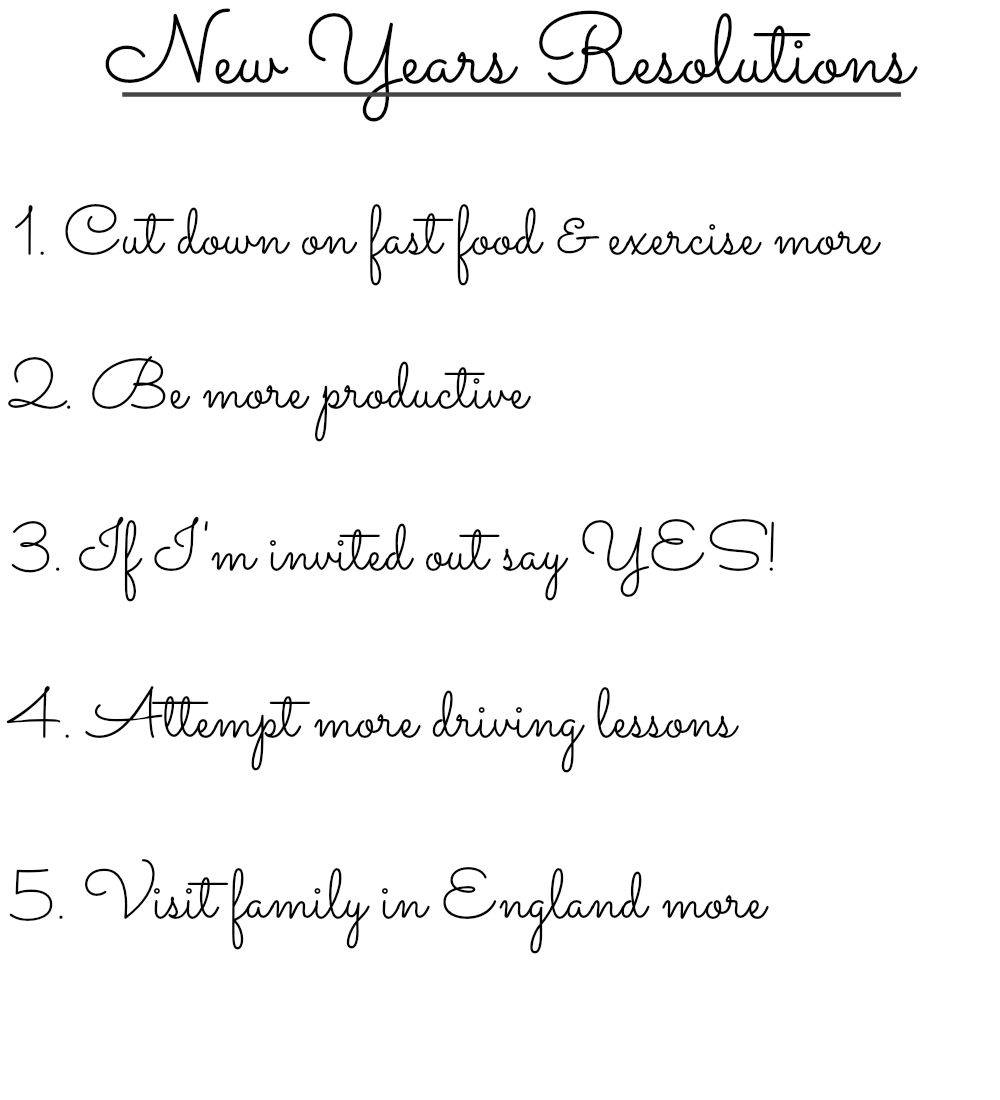 New Years Resolutions
1. Cut down on fast food & exercise more
2. Be more productive
3. If I'm invited out say YES!
4. Attempt more driving lessons
5. Visit family in England more